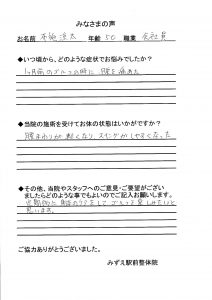 みなさまの声
お名前 年齢 50 職業 会社員
◆いつ頃から、どのような症状でお悩みでしたか?
1ヶ月前のゴルフの時に 腰を痛めた
◆当院の施術を受けてお体の状態はいかがですか?
腰まわりが軽くなり、スイングがしやすくなった
◆その他、当院やスタッフへのご意見・ご要望がござい
ましたらどのような事でもよいのでご記入お願いします。
定期的に 施術のケアをして ゴルフを楽しみたいと
思います。
ご協力ありがとうございました。
みずえ駅前整体院